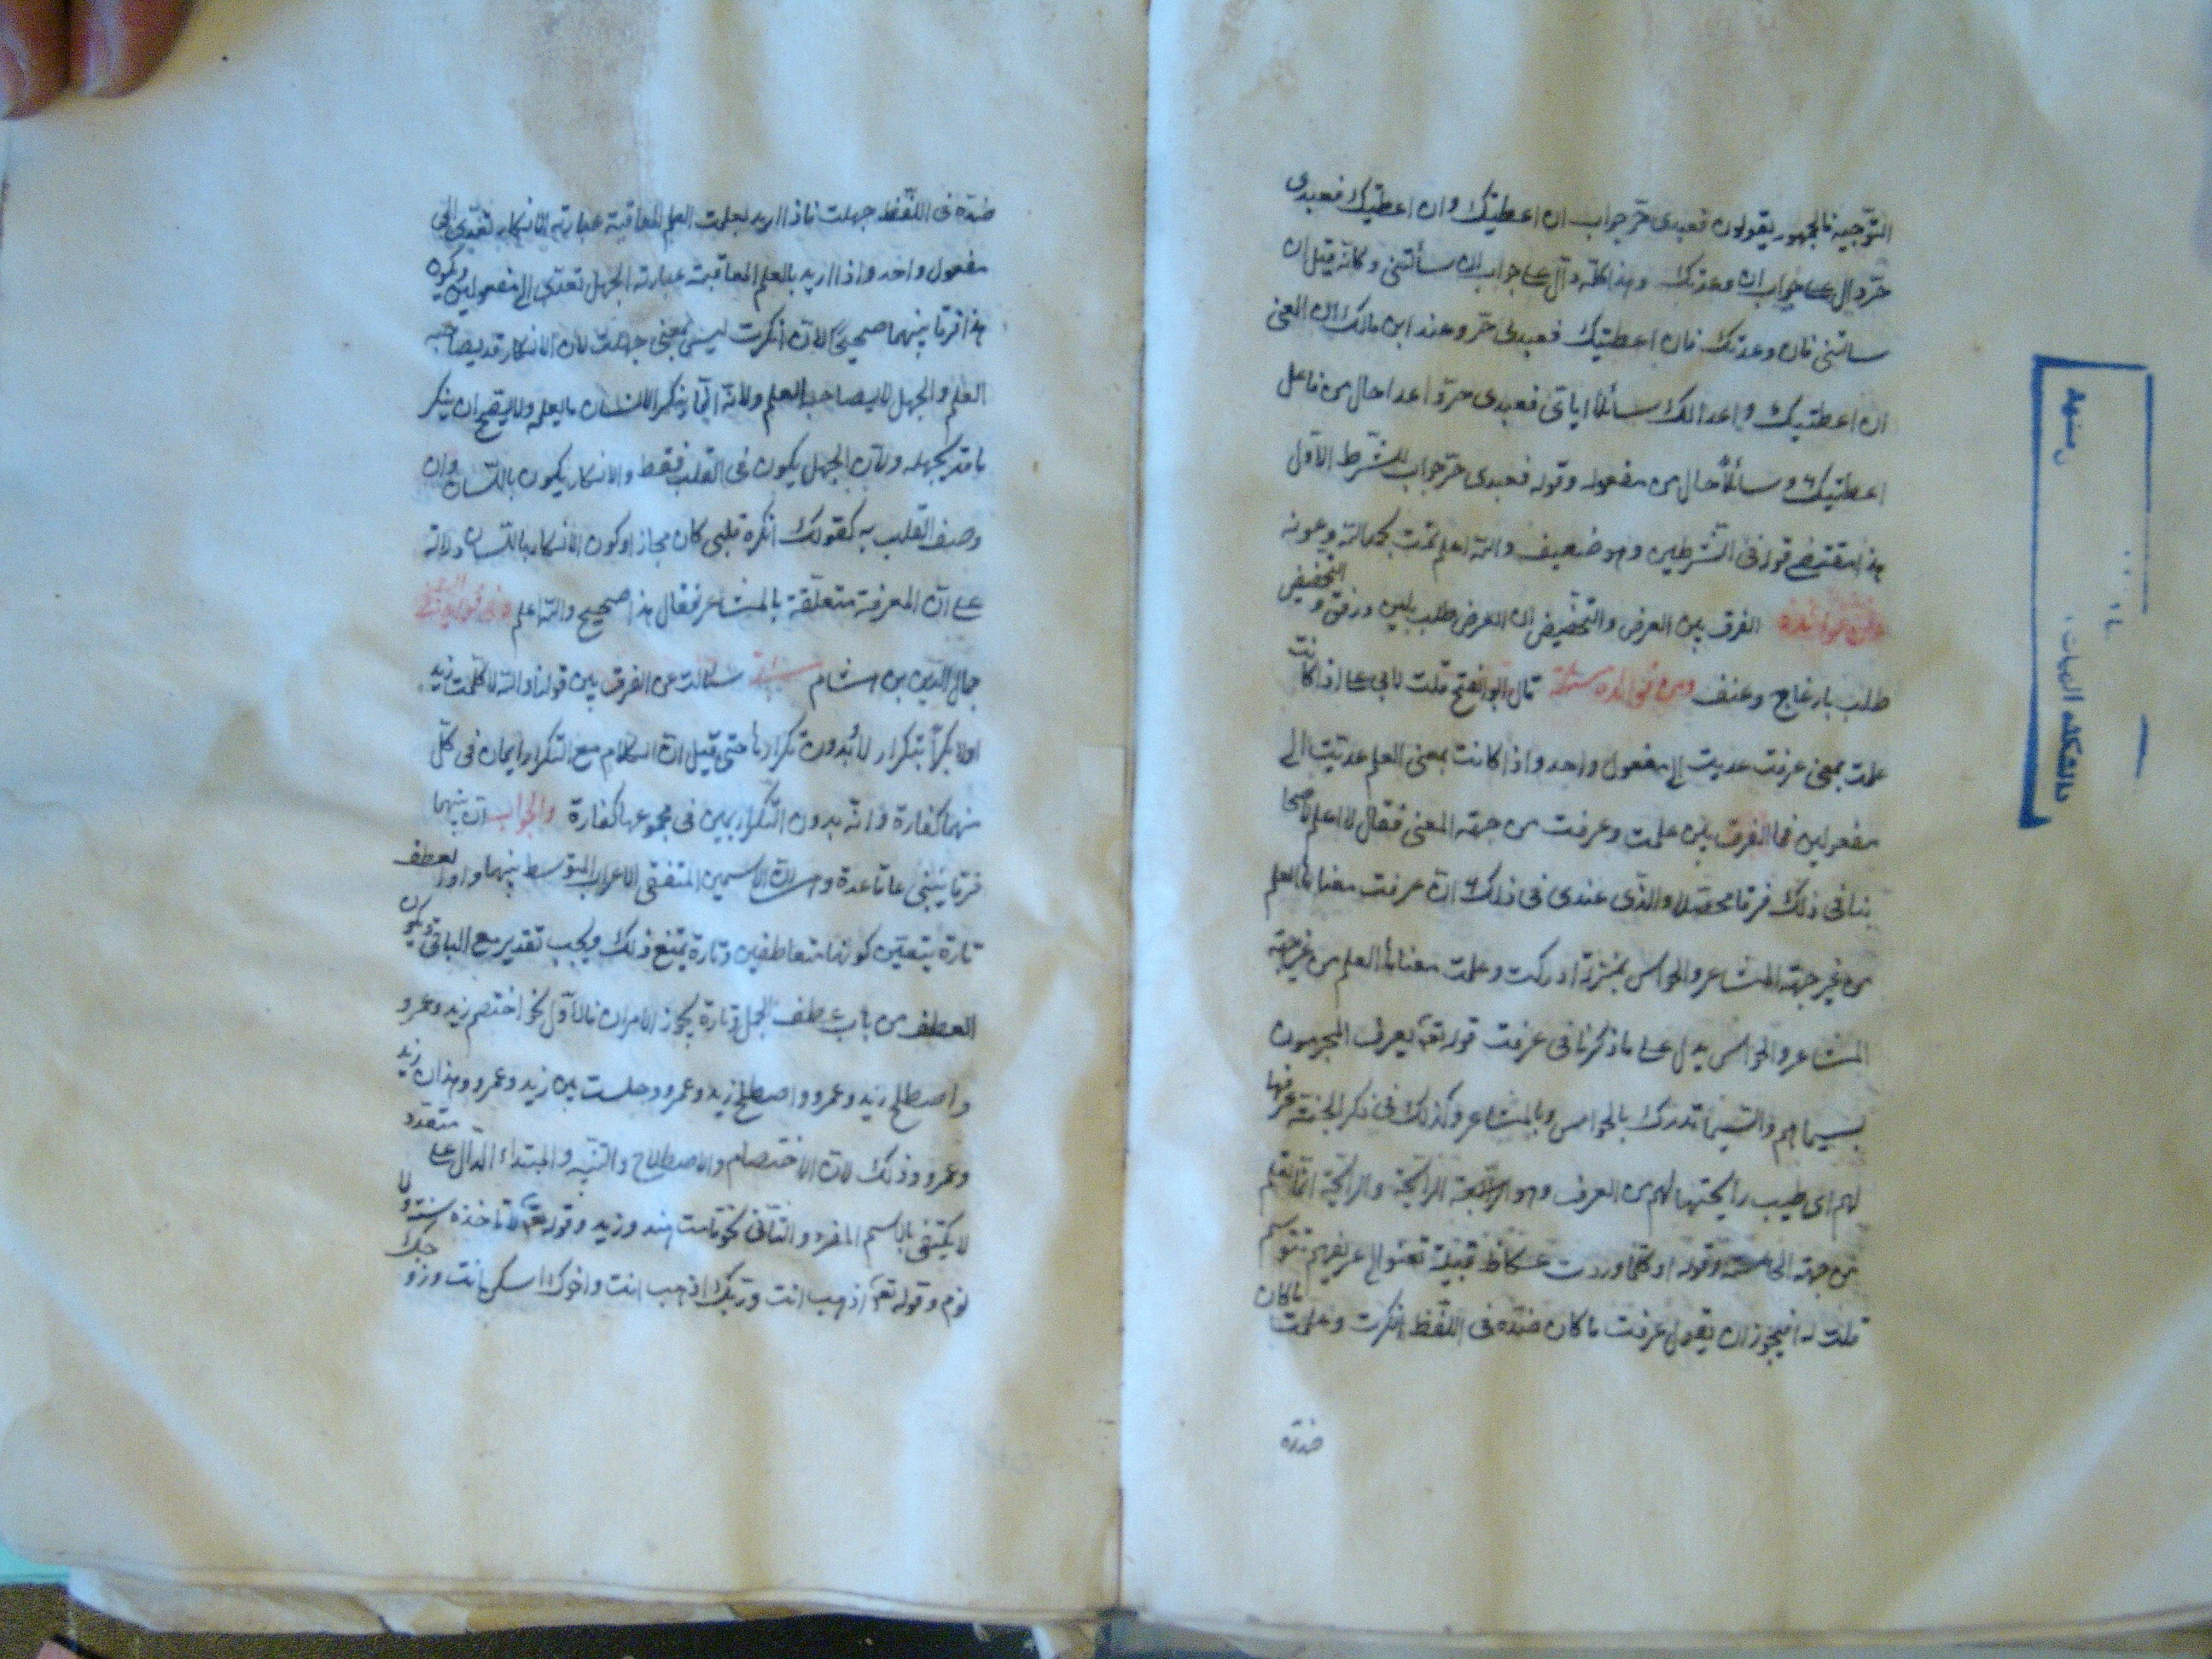 التوجيه فالجمهور يقولون فعبدي حرّ جواب ان اعطيتك وان اعطيتك فعبدي
حرّ دال على جواب ان وعدتك وهذا كلّه دالّ على جواب ان سألتني وكانّه قيل ان
سالتني فان وعدتك فان اعطيتك فعبدي حرّ وعند ابن مالك ان المعنى
ان اعطيتك واعدا لك سائلا اياي فعبدي حرّ واعدا حال من فاعل
اعطيتك وسائلا حال من مفعوله وقوله فعبدي حرّ جواب للشّرط الاوّل
هذا مقتضى قوله في الشّرطين وهو ضعيف والله اعلم تمت بحمد الله وعونه
ومن فوائده الفرق بين العرض والتّحضيض ان العرض طلب بلين ورفق والتحضيض
طلب بازعاج وعنف ومن فوائده مسئلة قال ابو الفتح قلت لابي علي اذا كانت
علمت بمعنى عرفت عديت الى مفعول واحد واذا كانت بمعنى العلم عديت الى
مفعولين فما الفرق بين علمت وعرفت من جهة المعنى فقال لا اعلم لاصحا
بنا في ذلك فرقا محصّلا والذي عندي في ذلك انّ عرفت معناها العلم
من غير جهة المشاعر والحواس بمنزلة ادركت وعلمت معناها العلم من غير جهة
المشاعر والحواس يدل على ما ذكرنا في عرفت قوله تعه يعرف المجرمون
بسيماهم والسّيما تدرك بالحواس وبالمشاعر وكذلك في ذكر الجنة عرفها
لهم اى طيب رايحتها لهم من العرف وهو الرائحة والرائحة انّما تعلم
من جهة الحاسة وقوله او كلّما وردت عكاظ قبيلة بعثوا الي عريفهم يتوسم
قلت له افيجوز ان يقول عرفت ما كان ضدّه في اللّفظ انكرت وعلمت ما كان
ضدّه
ضدّه في اللّفظ جهلت فاذا اريد بعلمت العلم المعاقبة عبارته الانكار تعدّى الى
مفعول واحد واذا اريد بالعلم المعاقبة عبارته الجهل تعدّى الى مفعولين ويكون
هذا فرقا بينهما صحيحا لانّ انكرت ليس بمعنى جهلت لان الانكار قد يصاحب
العلم والجهل لا يصاحب العلم ولانّه انّما ينكر الانسان ما يعلمه ولا يصح ان ينكر
ما قد يجهله ولان الجهل يكون في القلب فقط والانكار يكون باللّسان وان
وصف القلب به كقولك انكره قلبي كان مجازا وكون الانكار باللّسان دلالة
على انّ المعرفة متعلّقة بالمشاعر فقال هذا صحيح والله اعلم
جمال الدّين بن هشام مسئلة سئالت عن الفرق بين قولنا والله لا كلّمت زيد
اولا بكراً بتكرار لا بدون تكرارها حتى قيل انّ الكلام مع التكرار ايمان في كلّ
منهما كفارة وانّه بدون التكرار يمين في مجموعها كفارة والجواب انّ بينهما
فرقا ينبني على قاعدة وهي ان الاسمين المتفقي الاعراب المتوسط بينهما واو العطف
تارة يتعين كونهما متعاطفين وتارة يمتنع ذلك ويجب تقدير مع الباقي ويكون
العطف من باب عطف الجمل وتارة يجوز الامران فالاوّل نحو اختصم زيد وعمرو
واصطلح زيد وعمرو واصطلح زيد وعمرو وجلست بين زيد وعمرو وهذان زيد
وعمرو وذلك لانّ الاختصام والاصطلاح والبنيه والمبتداء الدّال على متعدد
لا يكتفى بالاسم المفرد والثّاني نحو قامت هند وزيد وقوله تعه لا تاخذه سنة ولا
نوم وقوله تعه اذهب انت وربّك اذهب انت واخوك اسكن انت وزو جك